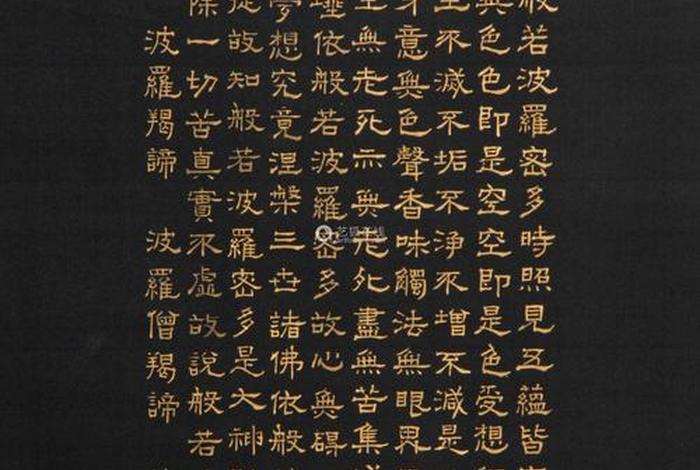 般若波羅密多時照見五蘊皆
異色色即是空空即是色受想
生不滅不垢不淨不增不減是
身意無色聲香味觸法無眼界
無老死亦無老死盡無苦集
埵依般若波羅密多故心無碍
夢想究竟涅槃三世諸佛依般
提故知般若波羅密多是大神
除一切苦真實不虛故說般若
波羅羯諦 波羅僧羯諦